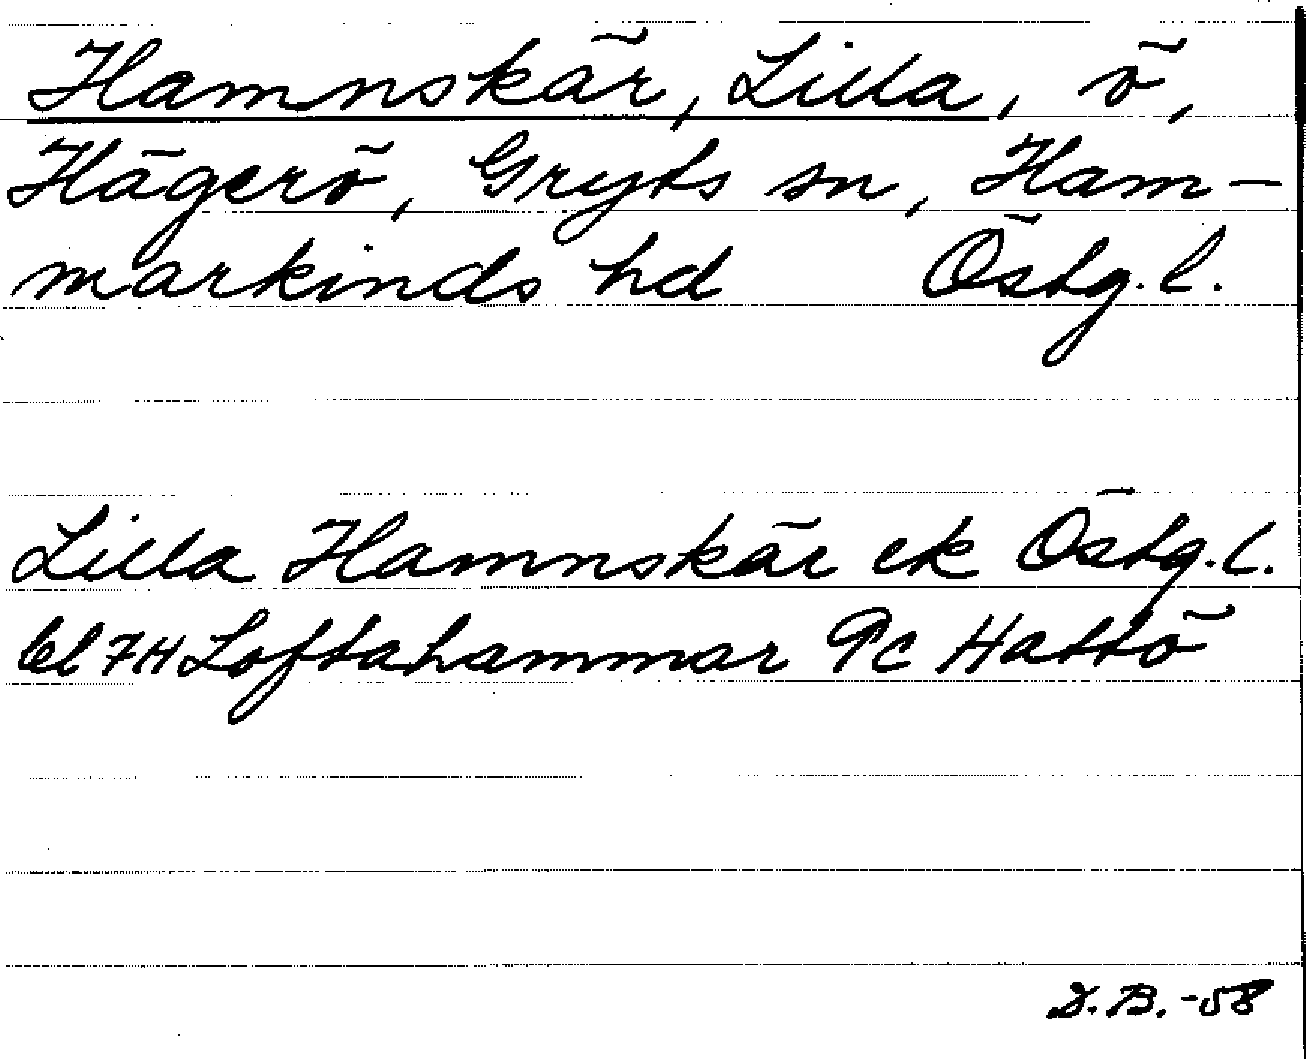 Hamnskär, Lilla, ö,
Hägerö, Gryts sn, Ham-
markinds hd Östg. l.
Lilla Hamnskär ek Östg. l.
bl 7H Loftahammar 9c Hattö
D. B. -58